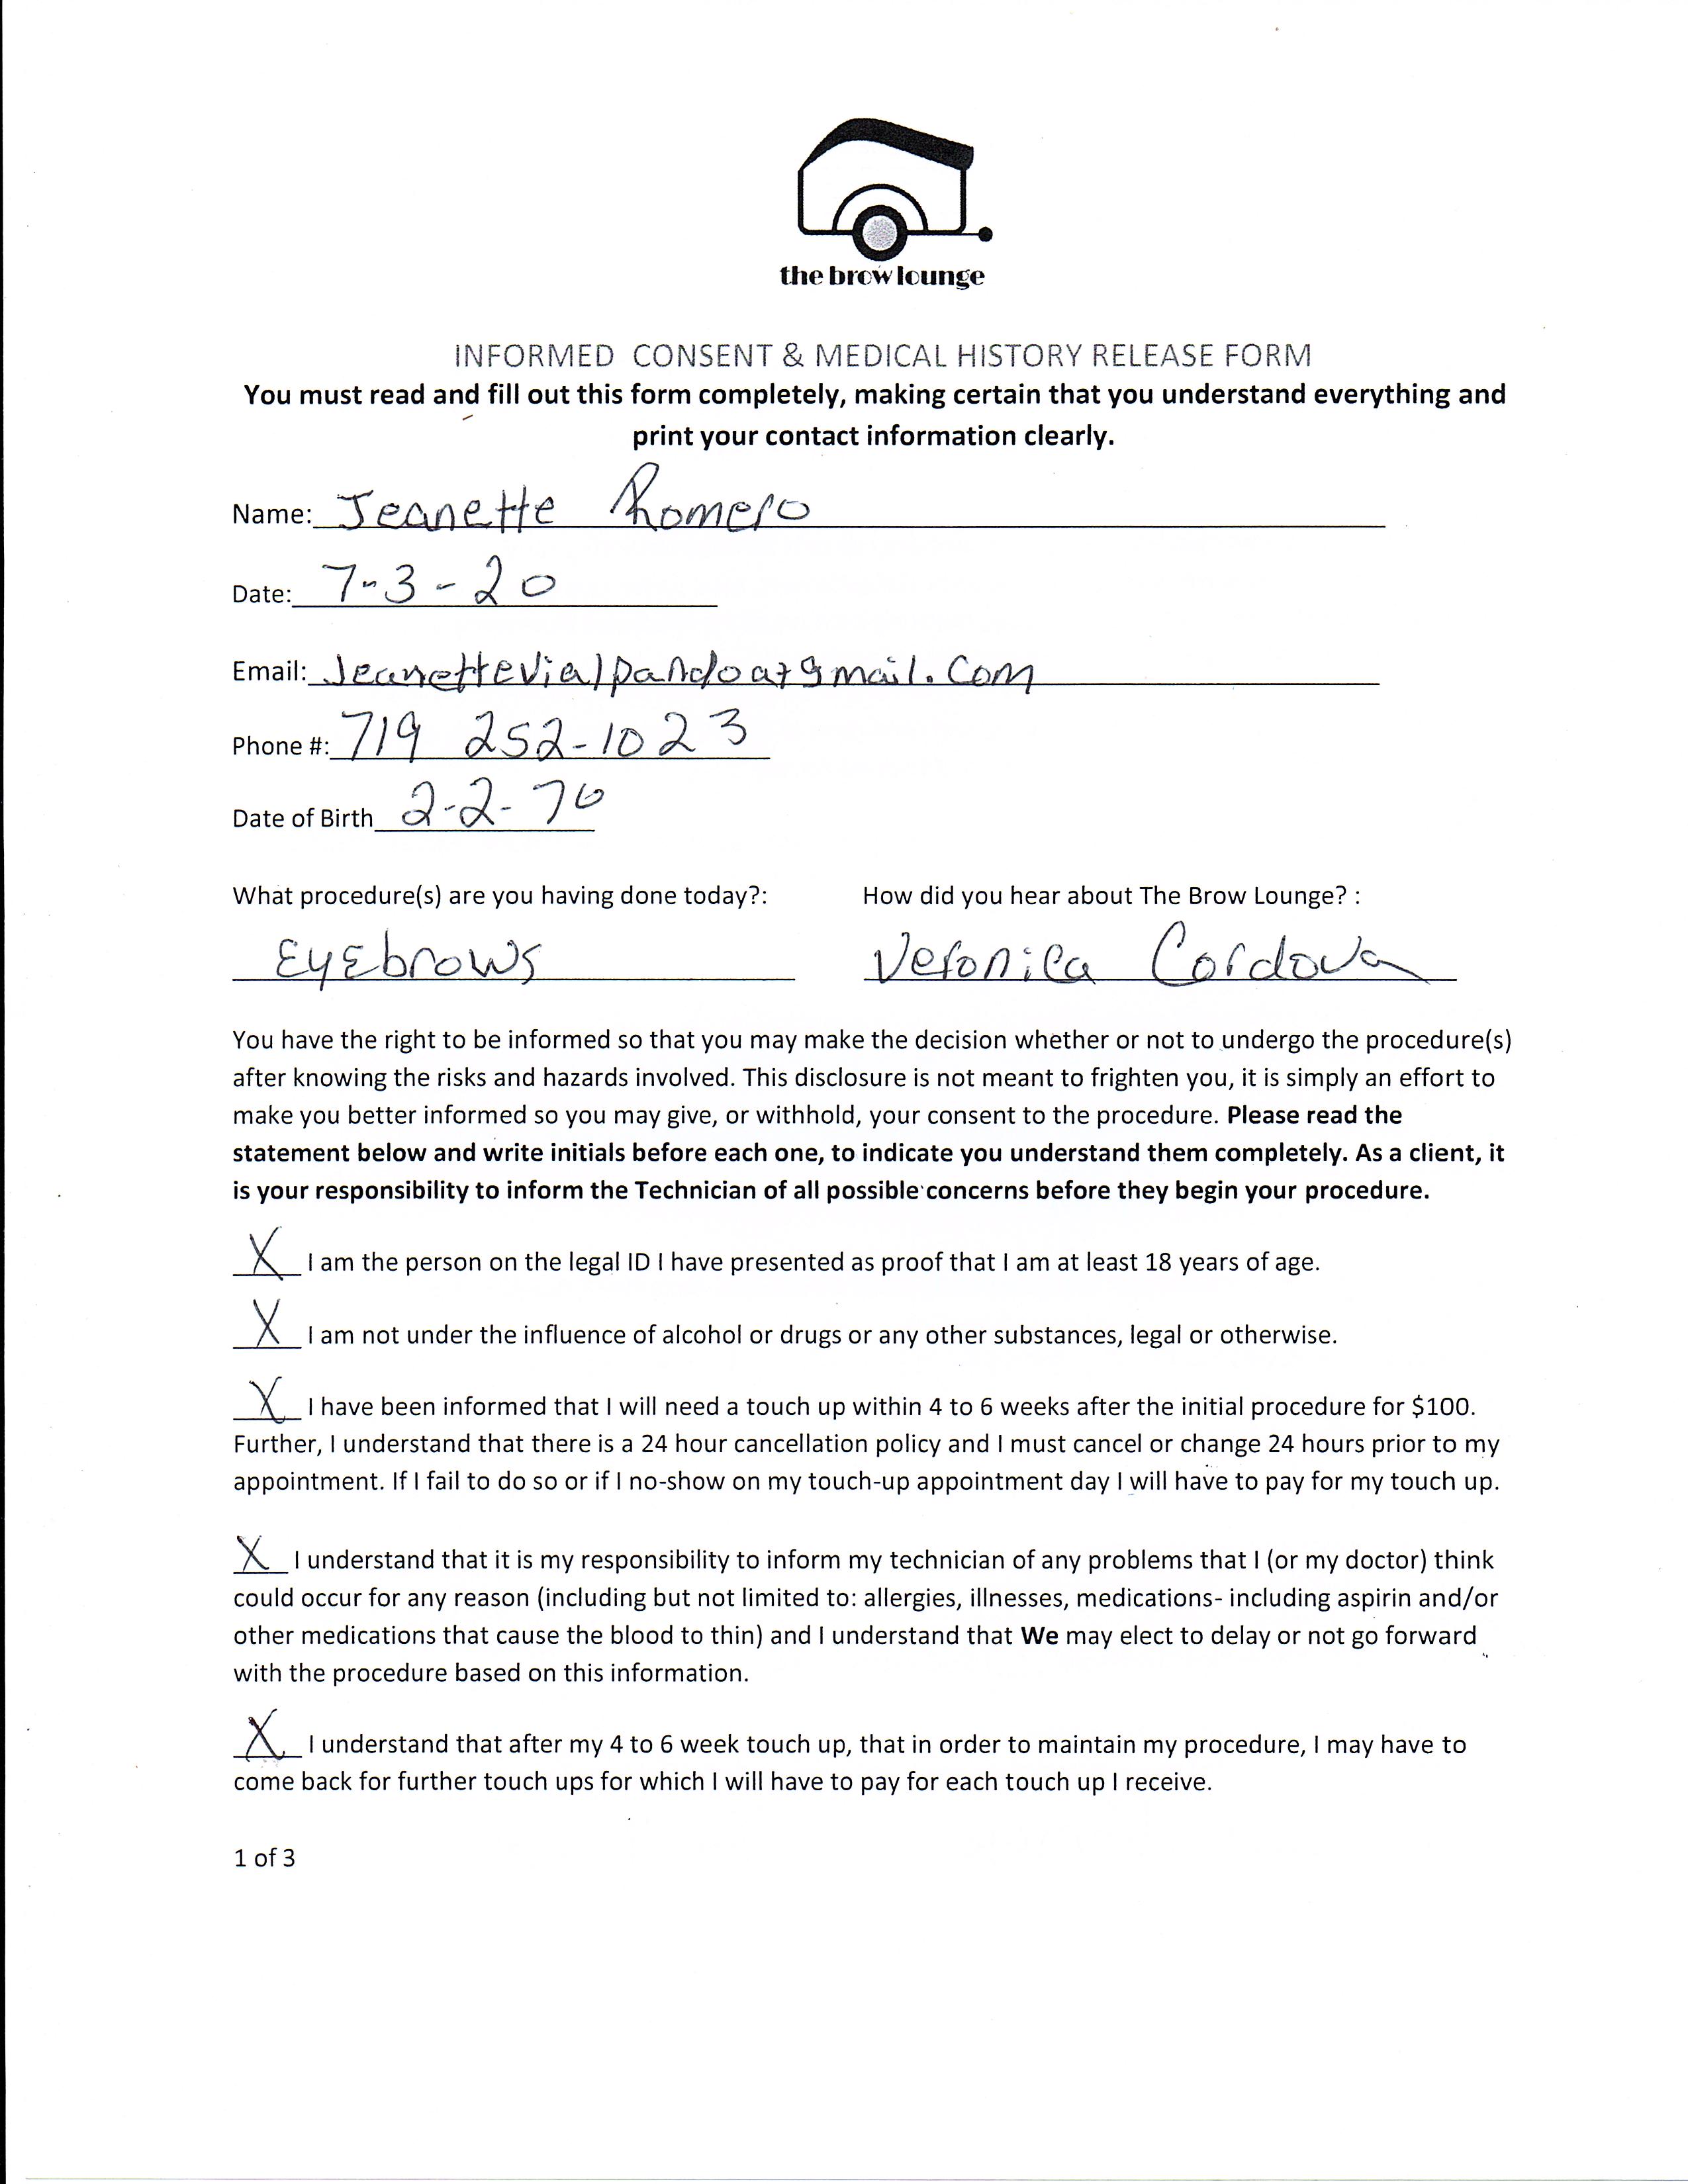 the brow lounge
INFORMED CONSENT & MEDICAL HISTORY RELEASE FORM
You must read and fill out this form completely, making certain that you understand everything and
print your contact information clearly.
Name: Jeanette Romero
Date: 7-3-20
Email: Jeanettevialpandoat9mail.Com
Phone #: 719 252-1023
Date of Birth 2-2-70
What procedure(s) are you having done today?: How did you hear about The Brow Lounge? :
EyEbrows Veronica Cordova
You have the right to be informed so that you may make the decision whether or not to undergo the procedure(s)
after knowing the risks and hazards involved. This disclosure is not meant to frighten you, it is simply an effort to
make you better informed so you may give, or withhold, your consent to the procedure. Please read the
statement below and write initials before each one, to indicate you understand them completely. As a client, it
is your responsibility to inform the Technician of all possible concerns before they begin your procedure.
X I am the person on the legal ID I have presented as proof that I am at least 18 years of age.
X I am not under the influence of alcohol or drugs or any other substances, legal or otherwise.
X I have been informed that I will need a touch up within 4 to 6 weeks after the initial procedure for $100.
Further, I understand that there is a 24 hour cancellation policy and I must cancel or change 24 hours prior to my
appointment. If I fail to do so or if I no-show on my touch-up appointment day I will have to pay for my touch up.
X I understand that it is my responsibility to inform my technician of any problems that I (or my doctor) think
could occur for any reason (including but not limited to: allergies, illnesses, medications- including aspirin and/or
other medications that cause the blood to thin) and I understand that We may elect to delay or not go forward
with the procedure based on this information.
X I understand that after my 4 to 6 week touch up, that in order to maintain my procedure, I may have to
come back for further touch ups for which I will have to pay for each touch up I receive.
1 of 3